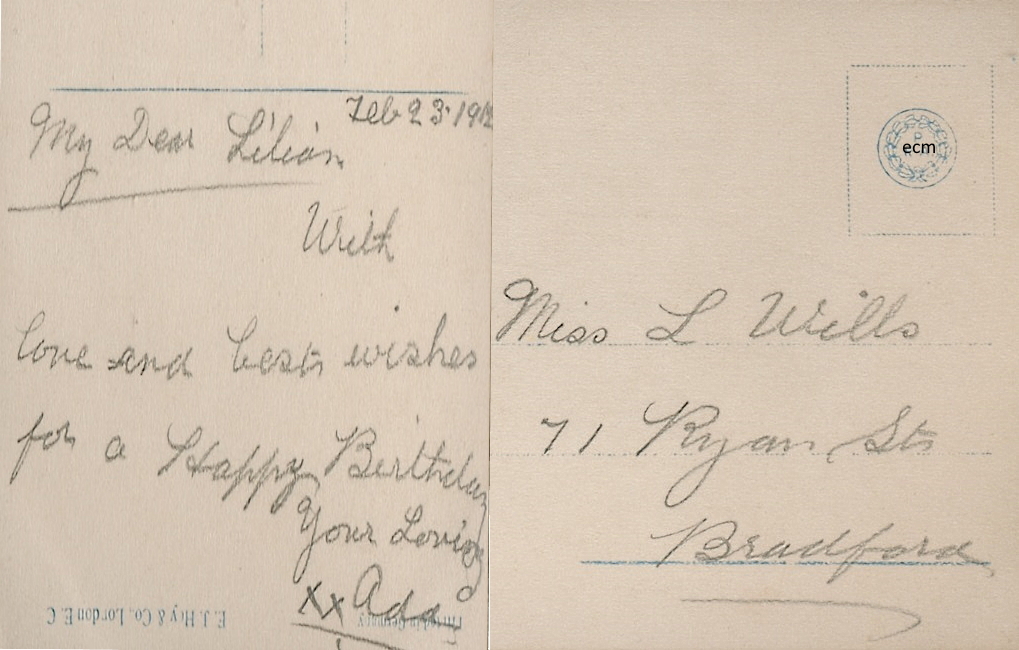 Feb 23. 1912
My Dear Lilian
With
love and best wishes
for a Happy Birthday
Your Loving
xx Ada
E. J. Hey & Co., London E.C
Printed in Germany
ecm
Miss L Wills
71 Ryan St
Bradford